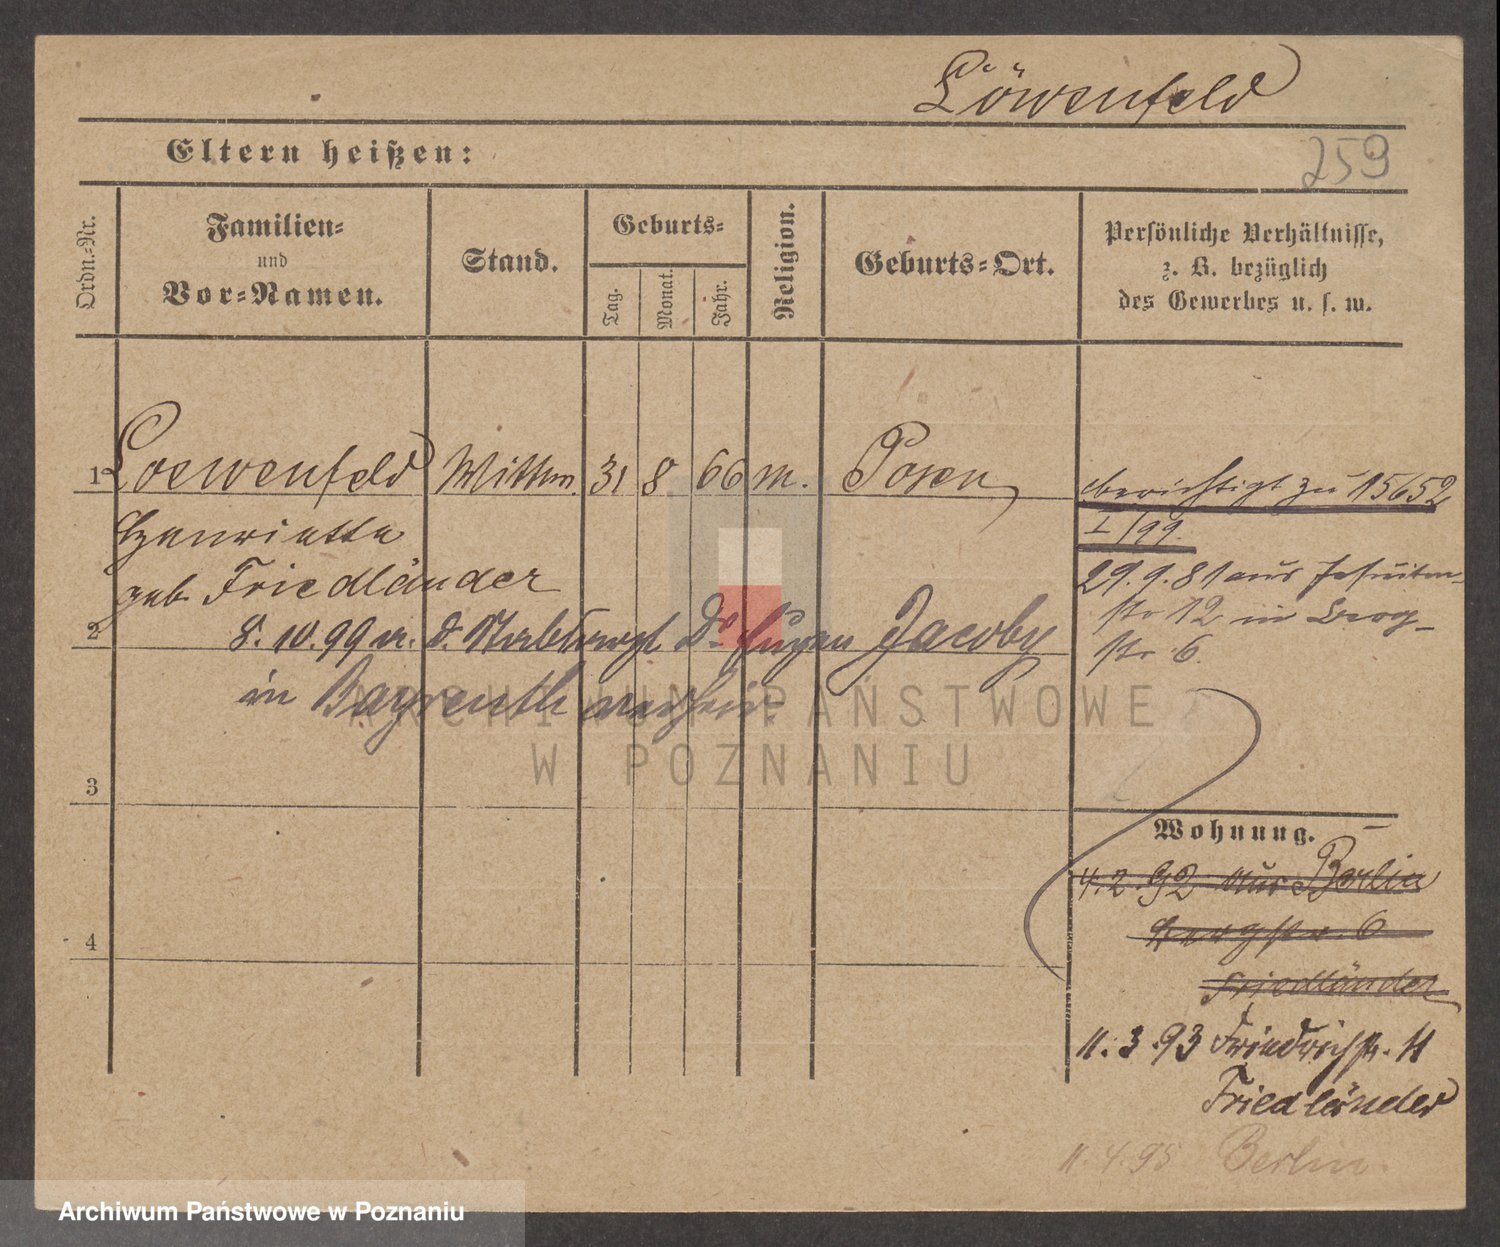 Löwenfeld
259
Eltern heißen:
Ordn.-Nr.
Familien-
und
Vor-Namen.
Stand.
Geburts-
Tag.
Monat.
Jahr.
Religion.
Geburts-Ort.
Persönliche Verhältnisse,
z. B. bezüglich
des Gewerbes u. s. w.
1 Loewenfeld Wittw. 31 8 66 m. Posen
Henriette
geb. Friedländer
berichtigt zu 15652
I/99.
29.9.81 aus Jesuiten-
str 12 in Berg-
str. 6.
2 8. 10. 99 m. d. Stabsarzt Dr Eugen Jacoby
in Bayreuth verheir.
3
4
Wohnung.
4.2.92 aus Berlin
Bergstr. 6
Friedländer
11.3.93 Friedrichstr. 11
Friedländer
11.4.95 Berlin.
ARCHIWUM PAŃSTWOWE
W POZNANIU
Archiwum Państwowe w Poznaniu